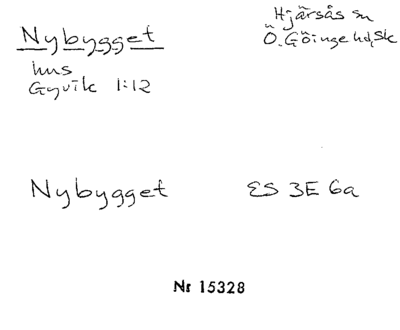 Nybygget
Hjärsås sn
Ö. Göinge hd, Sk
hus
Gyvik 1:12
Nybygget
ES 3E 6a
Nr 15328